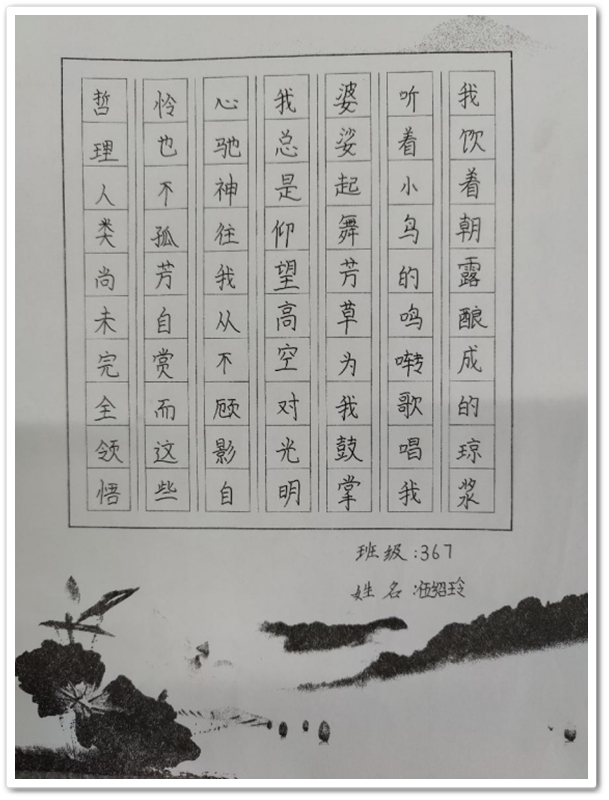 我饮着朝露酿成的琼浆
听着小鸟的鸣啭歌唱我
婆娑起舞芳草为我鼓掌
我总是仰望高空对光明
心驰神往我从不顾影自
怜也不孤芳自赏而这些
哲理人类尚未完全领悟
班级:367
姓名:伍绍玲